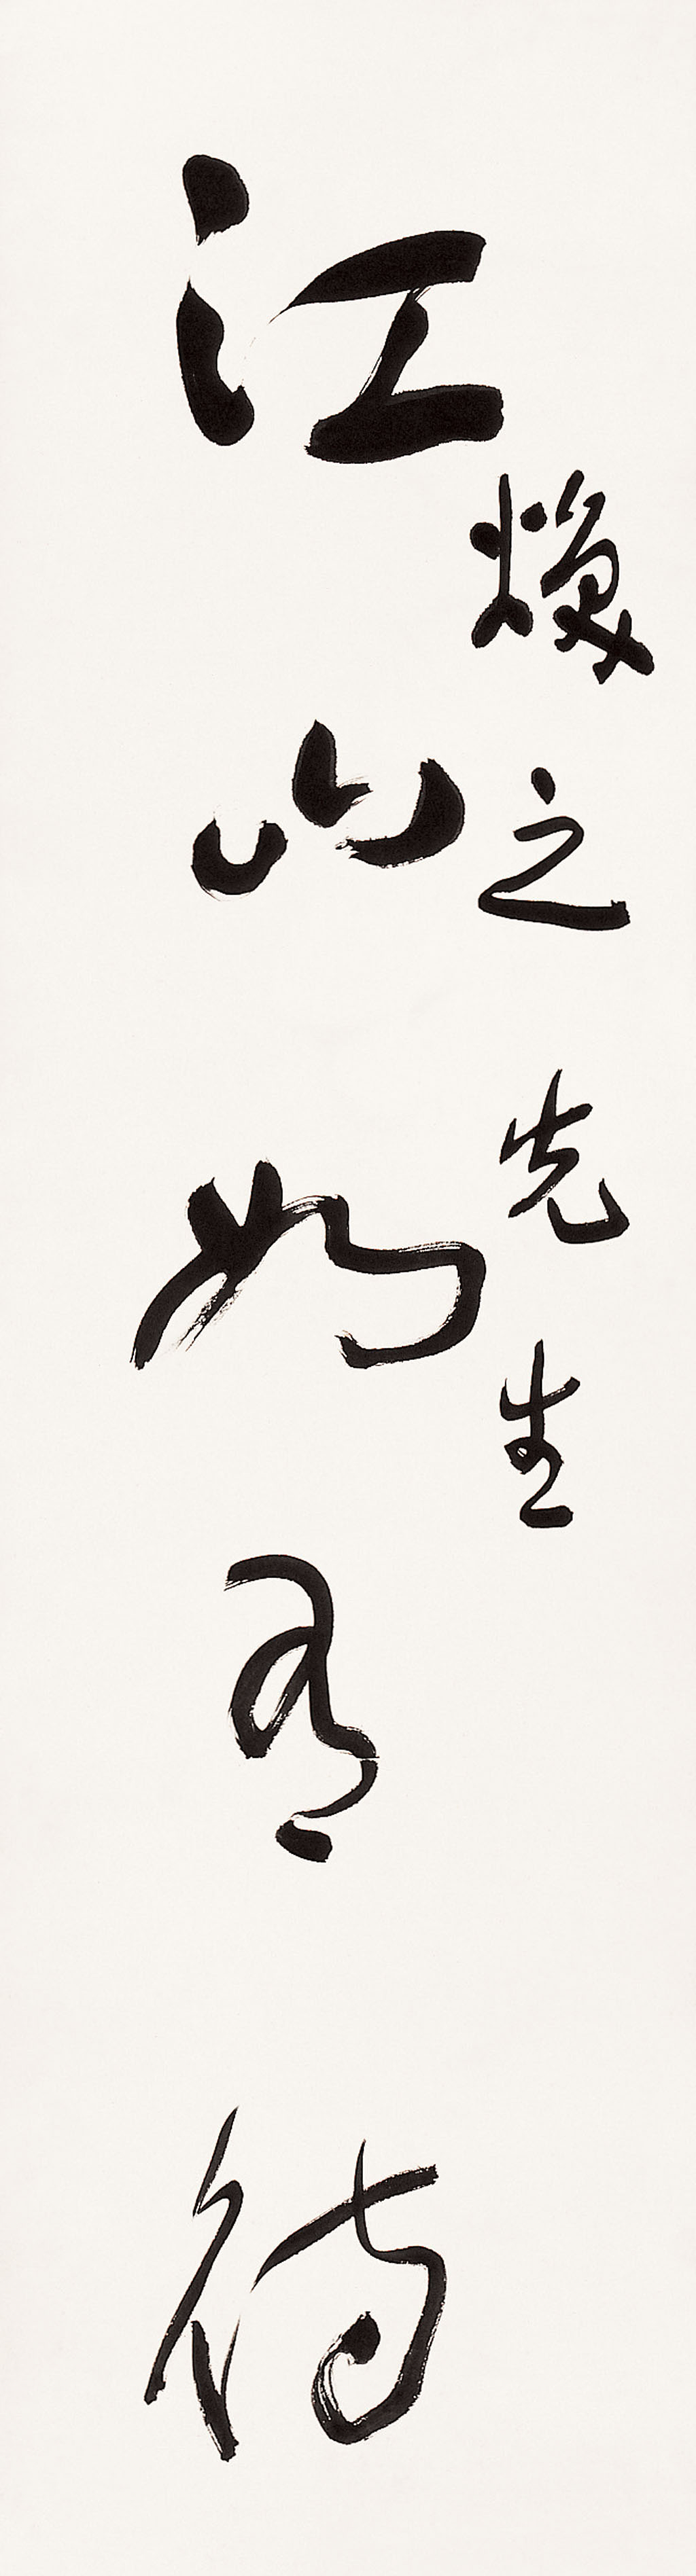 煥之先生
江山如有待